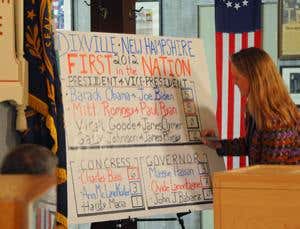 DIXVILLE • NEW HAMPSHIRE
2012
FIRST in the NATION
PRESIDENT + VICE-PRESIDENT
Barack Obama + Joe Biden
Mitt Romney + Paul Ryan
Virgil Goode + James Clymer
Gary Johnson + James
CONGRESS
Charles Bass
Ann McLane Kuster
Hardy Macia
GOVERNOR
Maggie Hassan
Ovide Lamontagne
John J. Babiarz